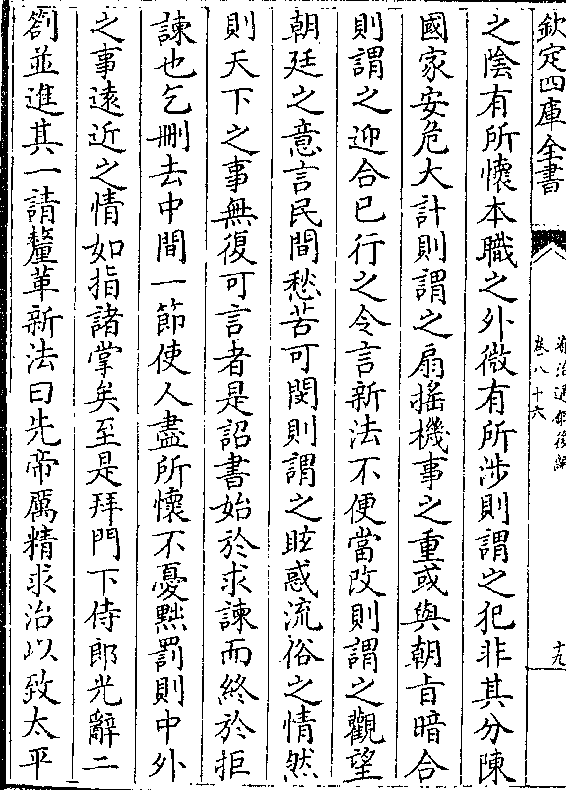 欽定四庫全書
資治通鑑後編
卷八十六
十九
之陰有所懷本職之外微有所涉則謂之犯非其分陳
國家安危大計則謂之扇搖機事之重或與朝旨暗合
則謂之迎合已行之令言新法不便當改則謂之觀望
朝廷之意言民間愁苦可閔則謂之眩惑流俗之情然
則天下之事無復可言者是詔書始於求諫而終於拒
諫也乞刪去中間一節使人盡所懷不憂黜罰則中外
之事遠近之情如指諸掌矣至是拜門下侍郎光辭二
劄並進其一請釐革新法曰先帝厲精求治以致太平